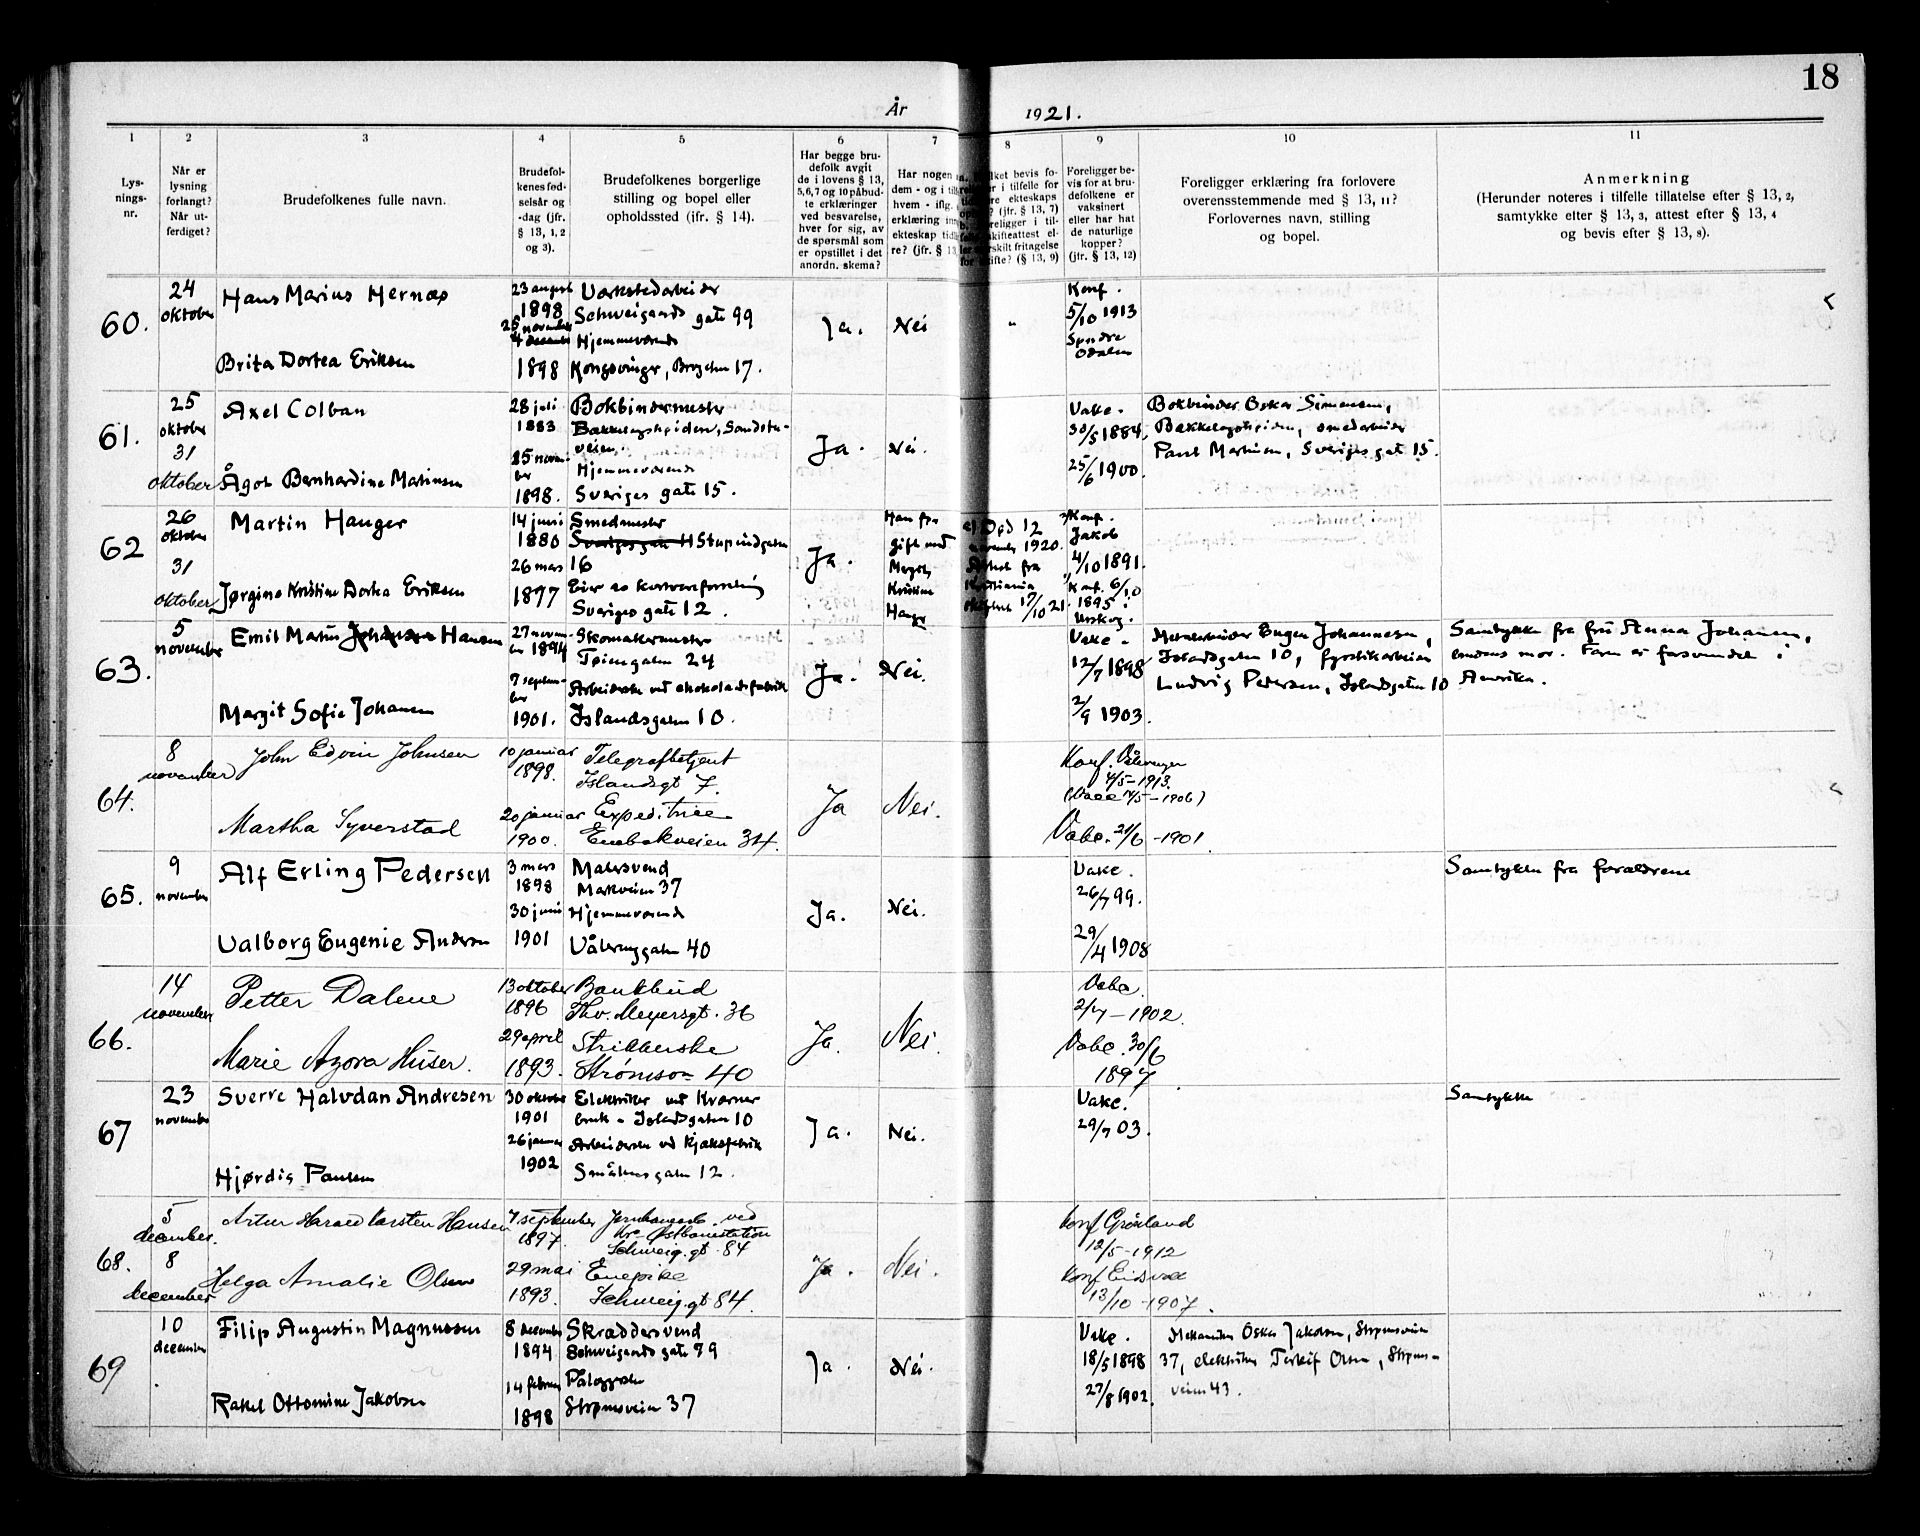 18
År 1921.
1 2 3 4 5 6 7 8 9 10 11
Lys-
nings-
nr.
Når er
lysning
forlangt?
Når ut-
ferdiget?
Brudefolkenes fulle navn.
Brudefol-
kenes fød-
selsår og
-dag (jfr.
§ 13, 1, 2
og 3).
Brudefolkenes borgerlige
stilling og bopel eller
opholdssted (ifr. § 14).
Har begge bru-
defolk avgit
de i lovens § 13,
5,6,7 og 10 påbud-
te erklæringer
ved besvarelse,
hver for sig, av
de spørsmål som
er opstillet i det
anordn. skema?
Har nogen
dem - og i
hvem - iflg.
erklæring
ekteskap
re? (jfr. § 13
bevis fo-
i tilfelle for
ekteskaps
? (jfr. § 13, 7)
foreligger i til-
skifteattest el-
særskilt fritagelse
skifte? (§ 13, 9)
Foreligger be-
vis for at bru-
defolkene er
vaksinert
eller har hat
de naturlige
kopper?
(jfr. § 13, 12)
Foreligger erklæring fra forlovere
overensstemmende med § 13, 11?
Forlovernes navn, stilling
og bopel.
Anmerkning
(Herunder noteres i tilfelle tillatelse efter § 13, 2,
samtykke efter § 13, 3, attest efter § 13, 4
og bevis efter § 13, 8).
60.
24
oktober
Hans Marius Hernæs
Brita Dortea Eriksen
23 august
1898
25 november
4 december
1898
Verkstedarbeider
Schweigaards gate 99
Hjemmeværende
Kongsvinger, 17.
Ja.
Nei
"
Konf.
5/10 1913
Søndre
Odalen
61.
25
oktober
31
oktober
Axel Colban
Ågot Bernhardine Martinsen
28 juli
1883
25 novem-
ber
1898.
Bokbindermester
Bækkelagshøiden, Sandstu-
veien.
Hjemmeværende
Sveriges gate 15.
Ja.
Nei.
Vakc.
30/5 1884,
25/6 1900.
Bokbinder Oskar Simensen,
Bækkelagshøiden, smedarbeider
Paul Martinsen, Sveriges gate 15.
62
26
oktober
31
oktober
Martin Hauger
Jørgine Kristine Dortea Eriksen
14 juni
1880
26 mars
1897
Smedmester
Sveriges gate 11 Stupindgaten
16
Eier av kortvareforretning
Sveriges gate 12.
Ja.
Han fra
gift med
Kristine
Hauger
Død 12
november 1920.
fra
Kristiania
17/10 21.
Konf.
Jakob
4/10 1891.
Konf. 6/10
1895.
63.
5
november
Emil Marius Johansen Hansen
Margit Sofie Johansen
27 novem-
ber 1894
7 septem-
ber
1901.
Skomakermester
Tøiengaten 24
Arbeiderske ved chokoladefabrik
Islandsgaten 10.
Ja.
Nei.
Vakc.
12/7 1898
2/9 1903.
Metalarbeider Eugen Johannesen,
Islandsgaten 10, fyrstikarbeider
Ludvig Pedersen, Islandsgaten 10
Samtykke fra fru Anna Johansen,
mor. Faren er forsvundet i
Amerika.
64.
8
november
John Edvin Johnsen
Martha Syverstad
10 januar
1898.
20 januar
1900.
Telegrafbetjent
Islandsgt 7.
Expeditrice
Enebakveien 34.
Ja
Nei.
Konf. Vålerengen
4/5-1913.
Vakc. 21/6-1901.
65.
9
november
Alf Erling Pedersen
Valborg Eugenie Andersen
3 mars
1898
30 juni
1901
Malersvend
Markveien 37
Hjemmeværende
Vålerenggaten 40
Ja.
Nei.
Vakc.
26/7 99.
29/4 1908
Samtykke fra forældrene
66.
14
november
Petter Dalene
Marie Azora Huser.
13 oktober
1896
29 april
1893.
Bankbud
Thv. Meyersgt. 36
Strikkerske
Strømsvn 40
Ja.
Nei.
Vakc.
2/7-1902.
Vakc. 30/6
1897.
67
23
november
Sverre Halvdan Andresen
Hjørdis Paulsen
30 oktober
1901
26 januar
1902
Elektriker ved Kværner
bruk - Islandsgaten 10
Arbeiderske ved kjeksfabrik
Smålensgaten 12.
Ja.
Nei.
Vakc.
29/7 03.
Samtykke
68.
5
december.
8
december
Artur Harald Karsten Hansen
Helga Amalie Olsen
7 september
1897.
29 mai
1893.
Jernbanearb. ved
Kr. Østbanestation
Schweig. gt. 84
Enepike
Schweig. gt 84.
Ja.
Nei.
Konf Grønland
12/5-1912
Konf Eidsvold
13/10-1907.
69
10
december
Filip Augustin Magnussen
Rakel Ottomine Jakobsen
8 december
1894
14 februar
1898
Skræddersvend
Schweigaards gate 99
Pålæggerske
Strømsveien 37
Ja.
Nei.
Vakc.
18/5 1898
27/8 1902.
Mekaniker Oskar Jakobsen, Strømsveien
37, elektriker Olsen, Strøms-
veien 43.